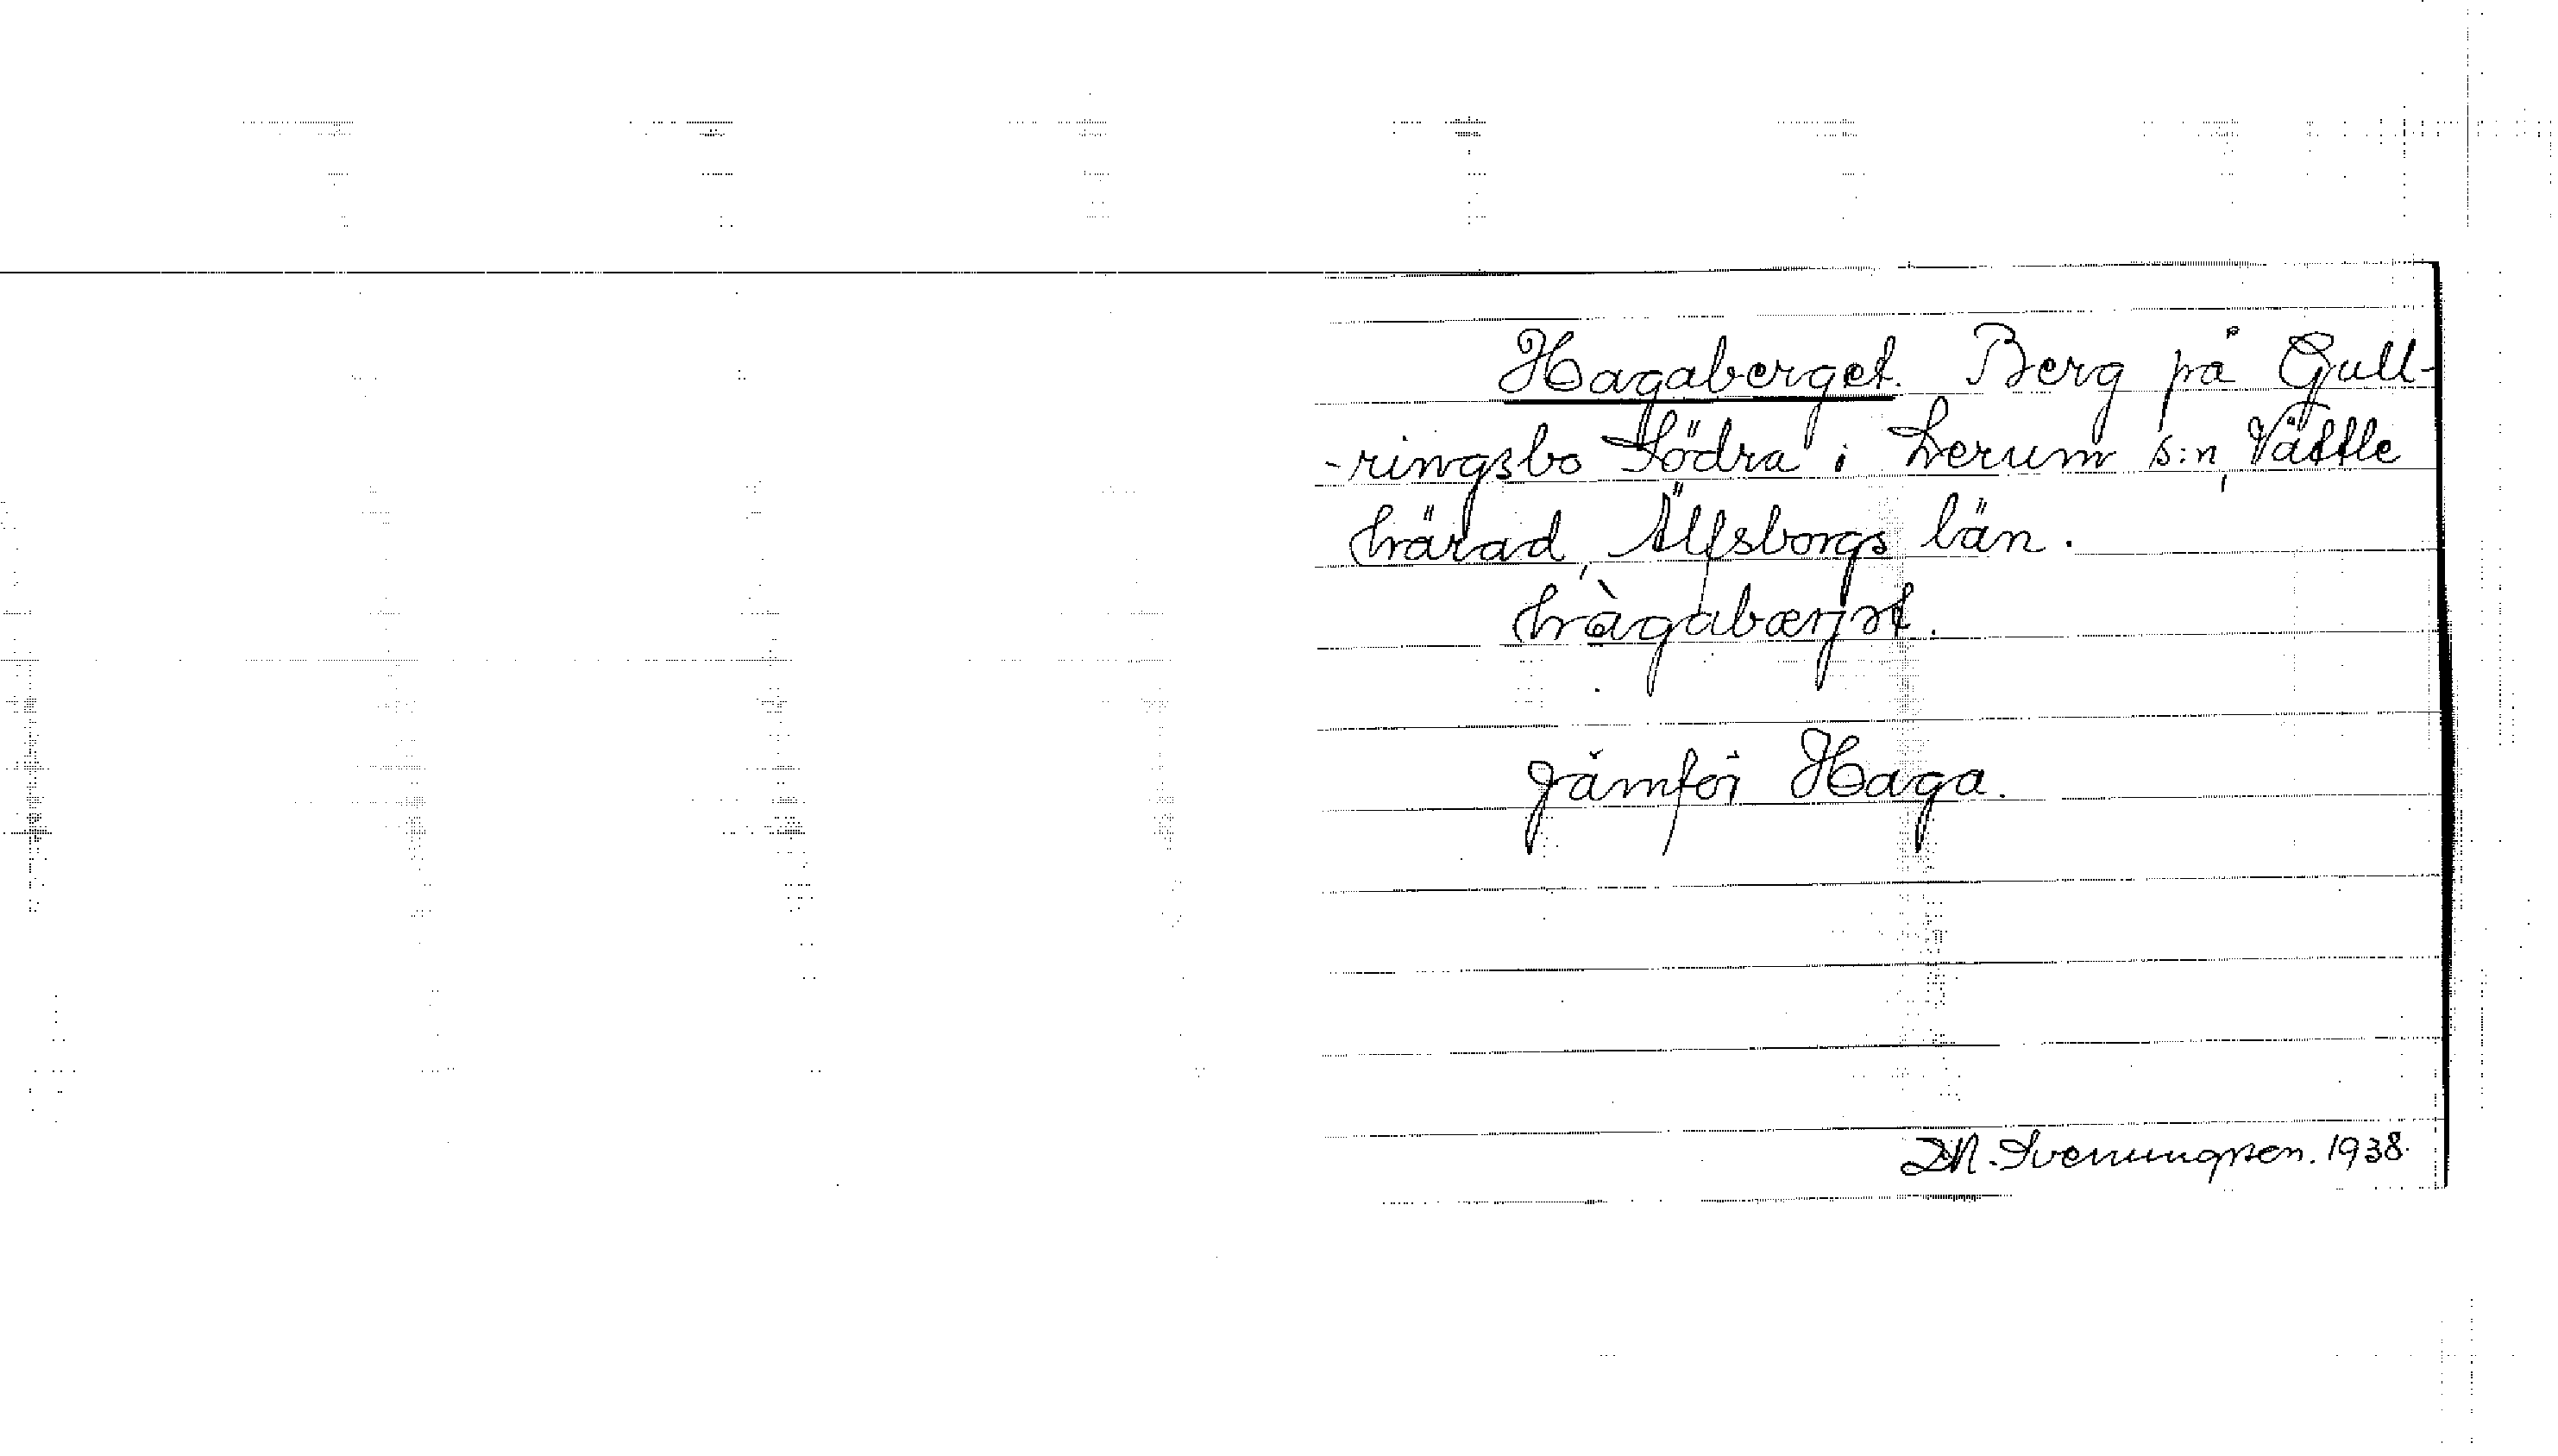 Hagaberget. Berg på Gull-
-ringsbo Södra i Lerum s:n, Vättle
härad, Älfsborgs län.
hàgabærjət.
Jämför Haga.
D.N. Svenungsson. 1938.